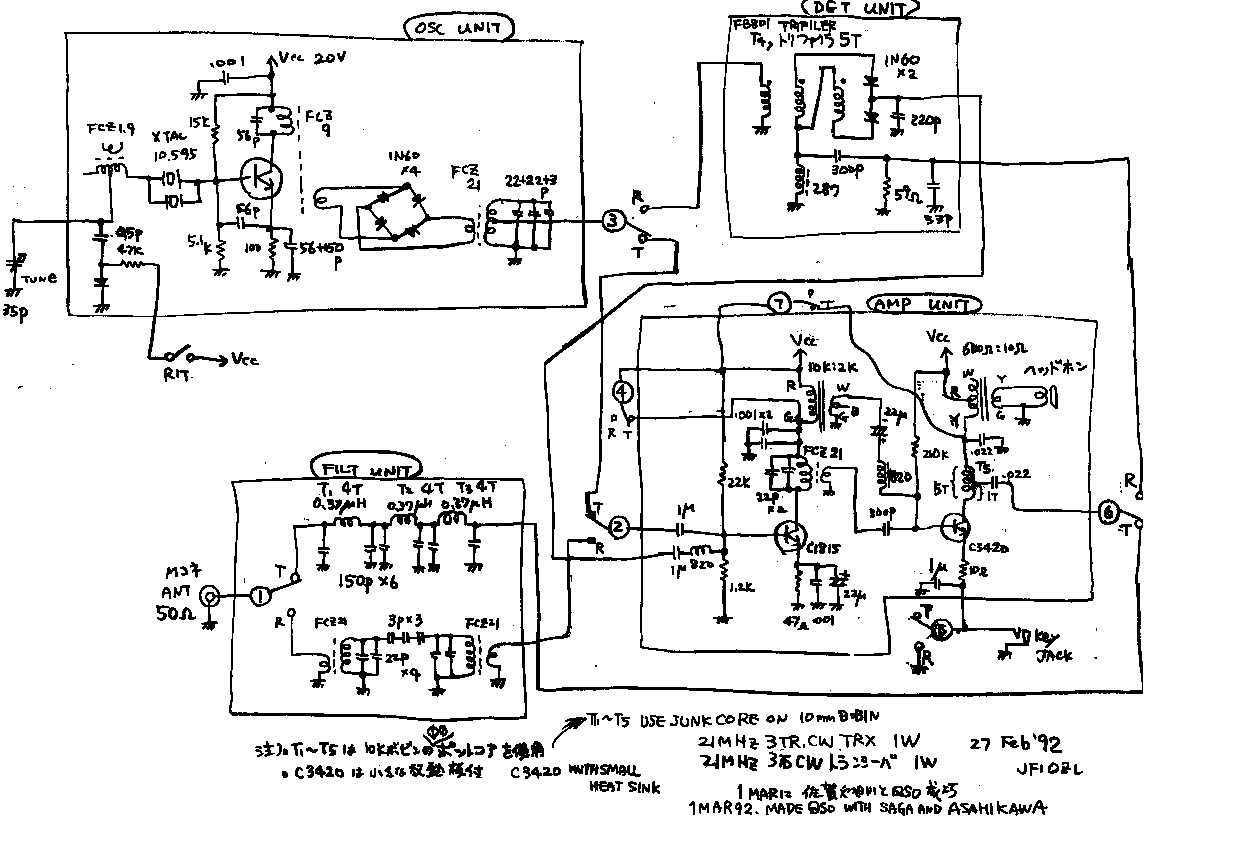 OSC UNIT
.001
Vcc 20V
15K
56p
FCZ
9
FCZ 1.9
XTAL
10.595
1N60
×4
FCZ
21
22+22+3
p
56p
5.1K
100
56+150
p
47K
TUNE
35p
RIT
Vcc
3
R
T
DET UNIT
FB801 TRIFILER
T4, トリファイラ 5T
1N60
×2
220p
300p
33p
AMP UNIT
7
T
Vcc
10K:2K
R
W
G
B
4
R T
.001×2
FCZ 21
22p
×2
22K
22μ
820
210K
300p
Vcc
600Ω:10Ω
ヘッドホン
W
R
Y
G
.022
T5
5T
1T
.022
C3420
10Ω
1μ
6
R
T
1μ
C1815
1μ 820
1.2K
47Ω
.001
22μ
R
KEY
JACK
FILT UNIT
T1 4T
T2 4T
T3 4T
0.37μH
0.37μH
0.37μH
T
2
R
150p×6
Mコネ
ANT
50Ω
1
T
R
FCZ21
3p×3
FCZ21
22p
×4
T1~T5 USE JUNK CORE ON 10mm BOBIN
注). T1~T5は 10Kボビンのポットコアを使用
・C3420 は小さな放熱板付
C3420 WITH SMALL
HEAT SINK
21MHz 3TR.CW TRX 1W
27 Feb '92
21MHz 3石CW トランシーバ 1W
JF1OZL
1 MARに 佐賀と旭川とQSO 成功
1MAR92. MADE QSO WITH SAGA AND ASAHIKAWA